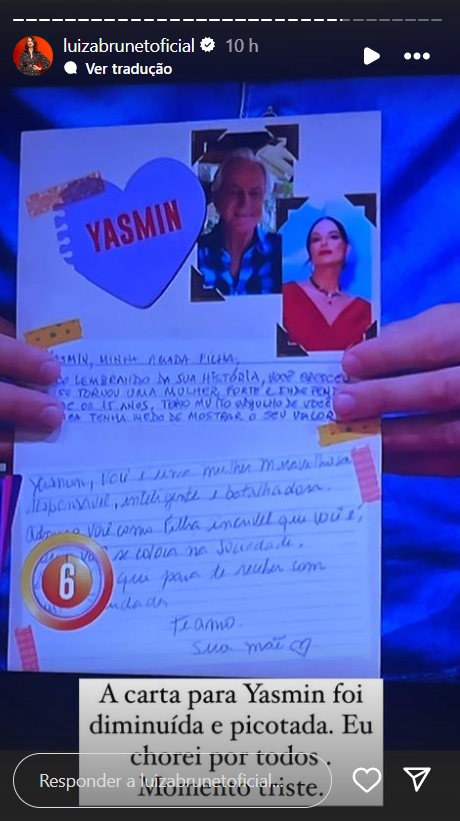 luizabrunetoficial 10 h
Ver tradução
YASMIN
MINHA AMADA FILHA,
LEMBRANDO DA SUA HISTÓRIA, VOCÊ CRESCEU
SE TORNOU UMA MULHER FORTE E INDEPEN
OS 15 ANOS, TENHO MUITO ORGULHO DE VOCÊ
TENHA MEDO DE MOSTRAR O SEU VALOR
Yasmin, você é uma mulher maravilhosa
responsável, inteligente e batalhadora.
você como filha incrível que você é,
se coloca na sociedade.
que para te receber com
6
Te amo.
Sua mãe
A carta para Yasmin foi
diminuída e picotada. Eu
chorei por todos .
Momento triste.
Responder a luizabrunetoficial...